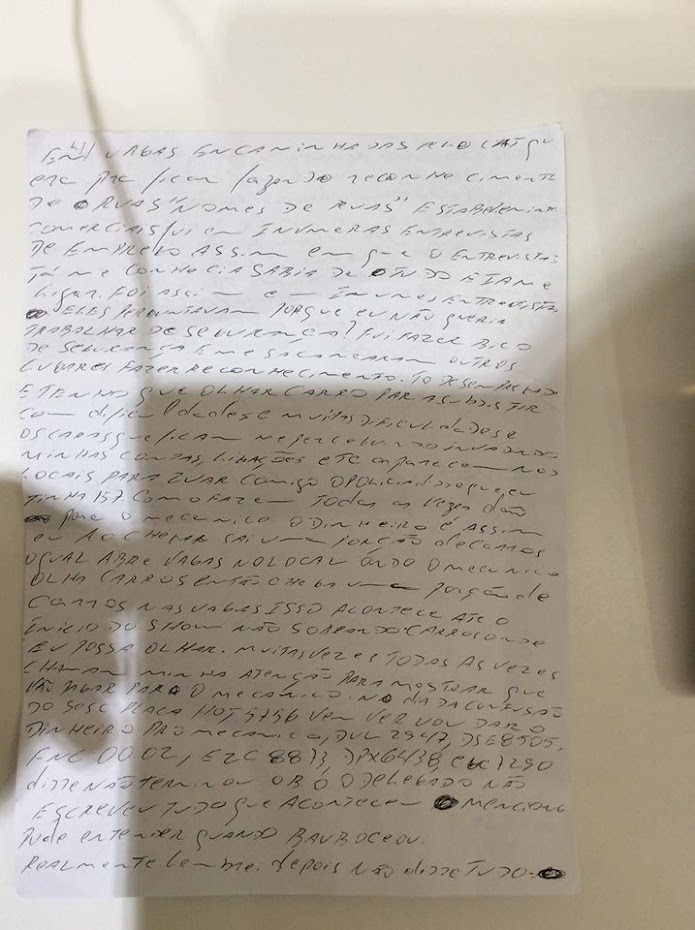 VAGAS ENCAMINHADAS PELO CAT
era pra ficar fazendo reconhecimento
DE RUAS "NOMES DE RUAS" ESTABELECIMENTO
COMERCIAIS fui em INUMERAS ENTREVISTAS
DE EMPREGO ASSIM em que O ENTREVISTAS
TÁ ME CONHECIA SABIA DE TUDO E IAM
ligar. FOI ASSIM em ENTREVISTAS
ELES PERGUNTAVAM PORQUE EU NÃO QUERIA
TRABALHAR DE SEGURANÇA? FUI FAZER BICO
DE SEGURANÇA E ME SACANEARAM OUTROS
LUGARES FAZER RECONHECIMENTO. TO DESEMPREGADO
E TENHO QUE OLHAR CARRO PARA SUBSISTIR
com dificuldades e MUITAS DIFICULDADES e
OS CARAS que ficam me percebendo INVADINDO
MINHAS CONTAS, LIGAÇÕES etc aparecem NOS
LOCAIS PARA ZUAR COMIGO O POLICIAL disse que eu
TINHA 157. COMO FAZEM TODAS as vezes dão
para O mecanico O DINHEIRO É ASSIM
eu AO CHEGAR SAI uma PORÇÃO de CARROS
O QUAL ABRE VAGAS NO LOCAL ONDO O mecanico
OLHA CARROS ENTÃO CHEGA uma porção de
CARROS NAS VAGAS ISSO ACONTECE ATÉ O
INICIO DO SHOW NÃO SOBRANDO CARROS ONDE
EU POSSA OLHAR. MUITAS VEZES TODAS AS VEZES
CHAMAM MINHA ATENÇÃO PARA MOSTRAR que
VÃO PAGAR PARA O MECANICO. NO DIA DA CONFUSÃO
DO SESC PLACA HOT 5756 VEM VER VOU DAR O
DINHEIRO PRO mecanico, DUL 2947, DSE8505,
FNC 0002, EZC 8873, DPX6438, 7290
disse NÃO terminou O BO O DELEGADO NÃO
ESCREVEU TUDO que ACONTECEU MENCIONO
Pude entender quando BALBUCEOU.
REALMENTE lembrei depois NÃO disse TUDO.